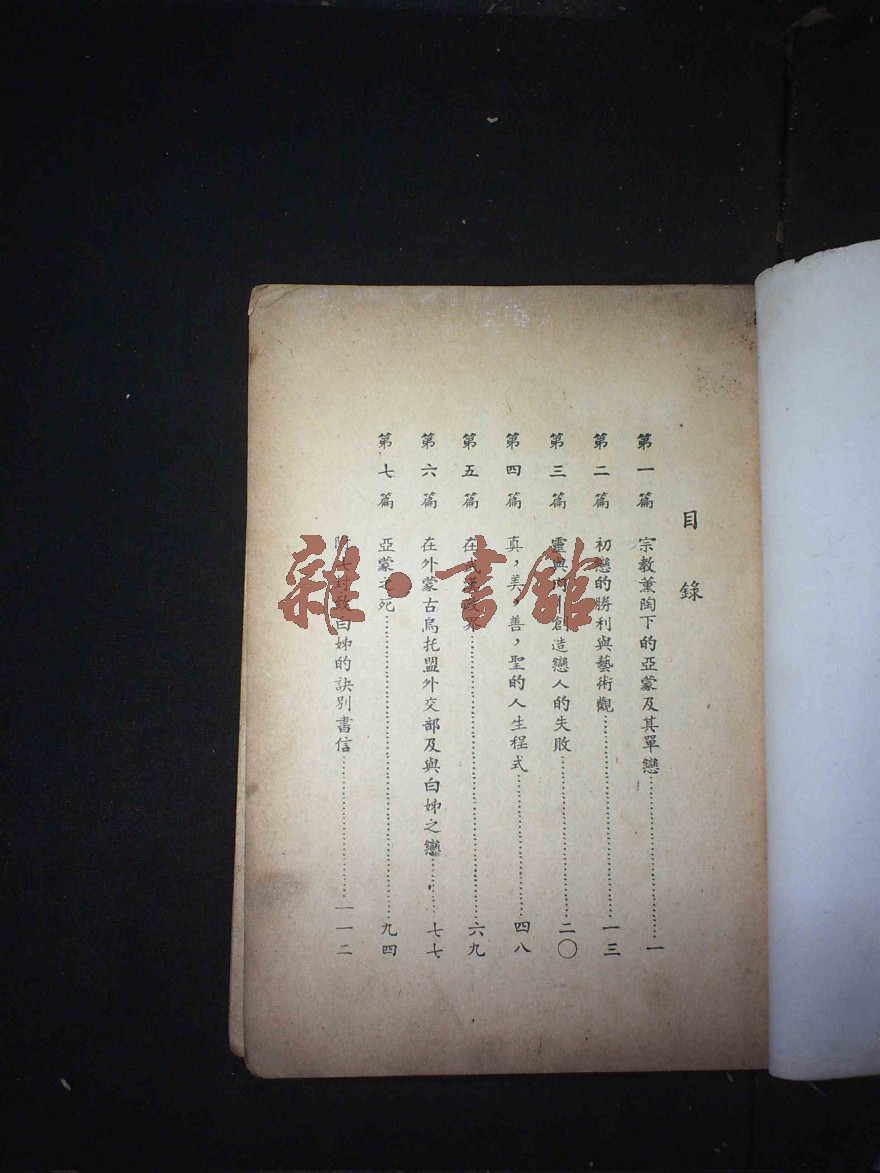 目錄
第一篇 宗教薰陶下的亞蒙及其單戀……一
第二篇 初戀的勝利與藝術觀……一三
第三篇 靈與肉—創造戀人的失敗……二〇
第四篇 真,美,善,聖的人生程式……四八
第五篇 在……六九
第六篇 在外蒙古烏托盟外交部及與白姊之戀……七七
第七篇 亞蒙之死……九四
附 封致白姊的訣別書信……一一二
雜·書館